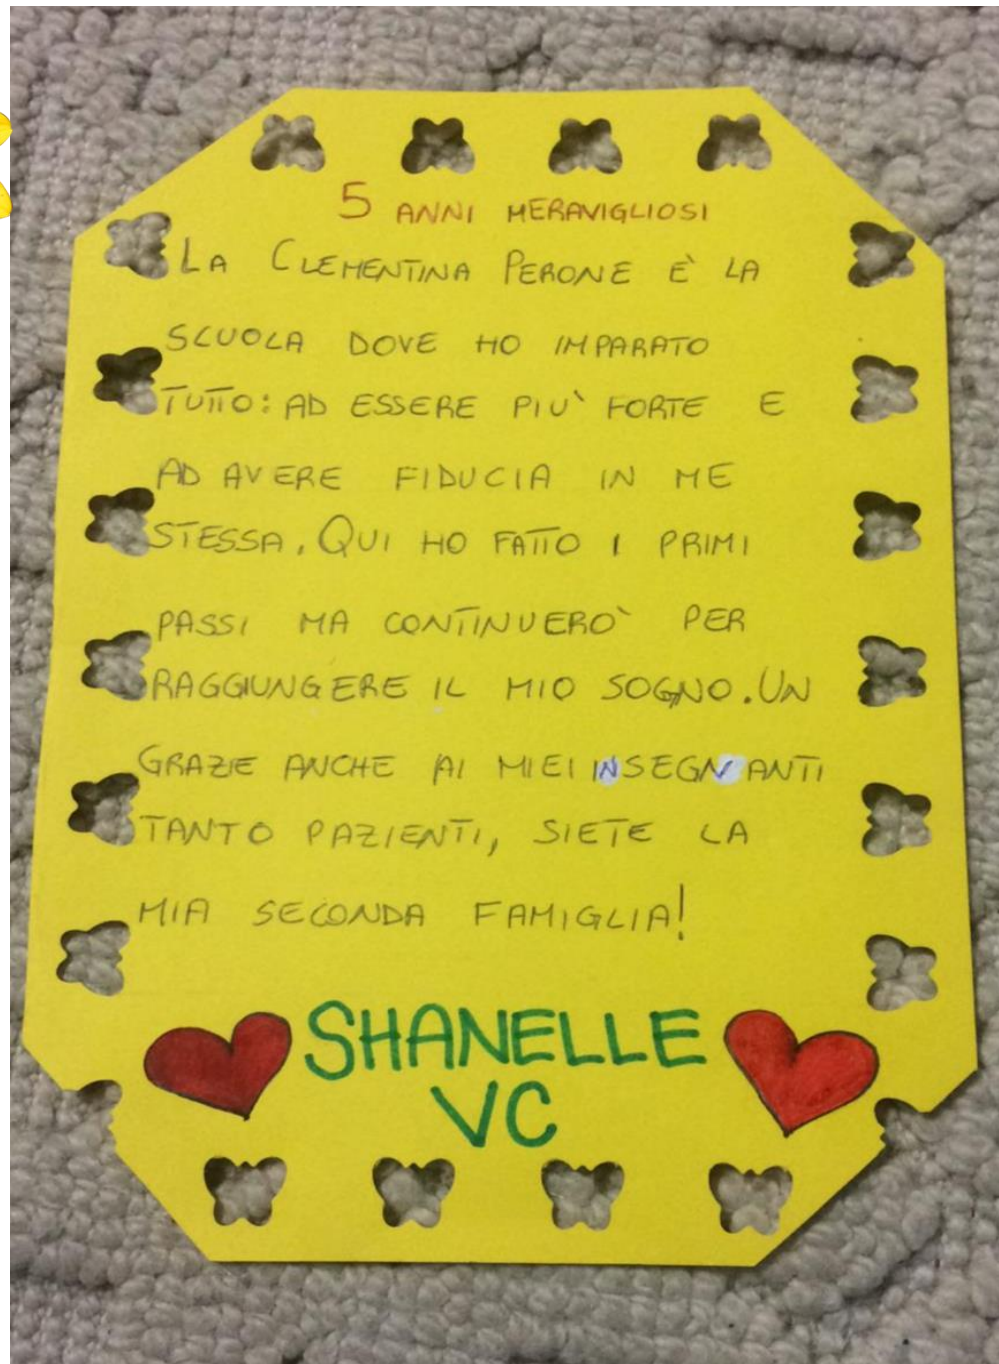 5 ANNI MERAVIGLIOSI
LA CLEMENTINA PERONE È LA
SCUOLA DOVE HO IMPARATO
TUTTO: AD ESSERE PIU' FORTE E
AD AVERE FIDUCIA IN ME
STESSA. QUI HO FATTO I PRIMI
PASSI MA CONTINUERO' PER
RAGGIUNGERE IL MIO SOGNO. UN
GRAZIE ANCHE AI MIEI INSEGNANTI
TANTO PAZIENTI, SIETE LA
MIA SECONDA FAMIGLIA!
SHANELLE
VC